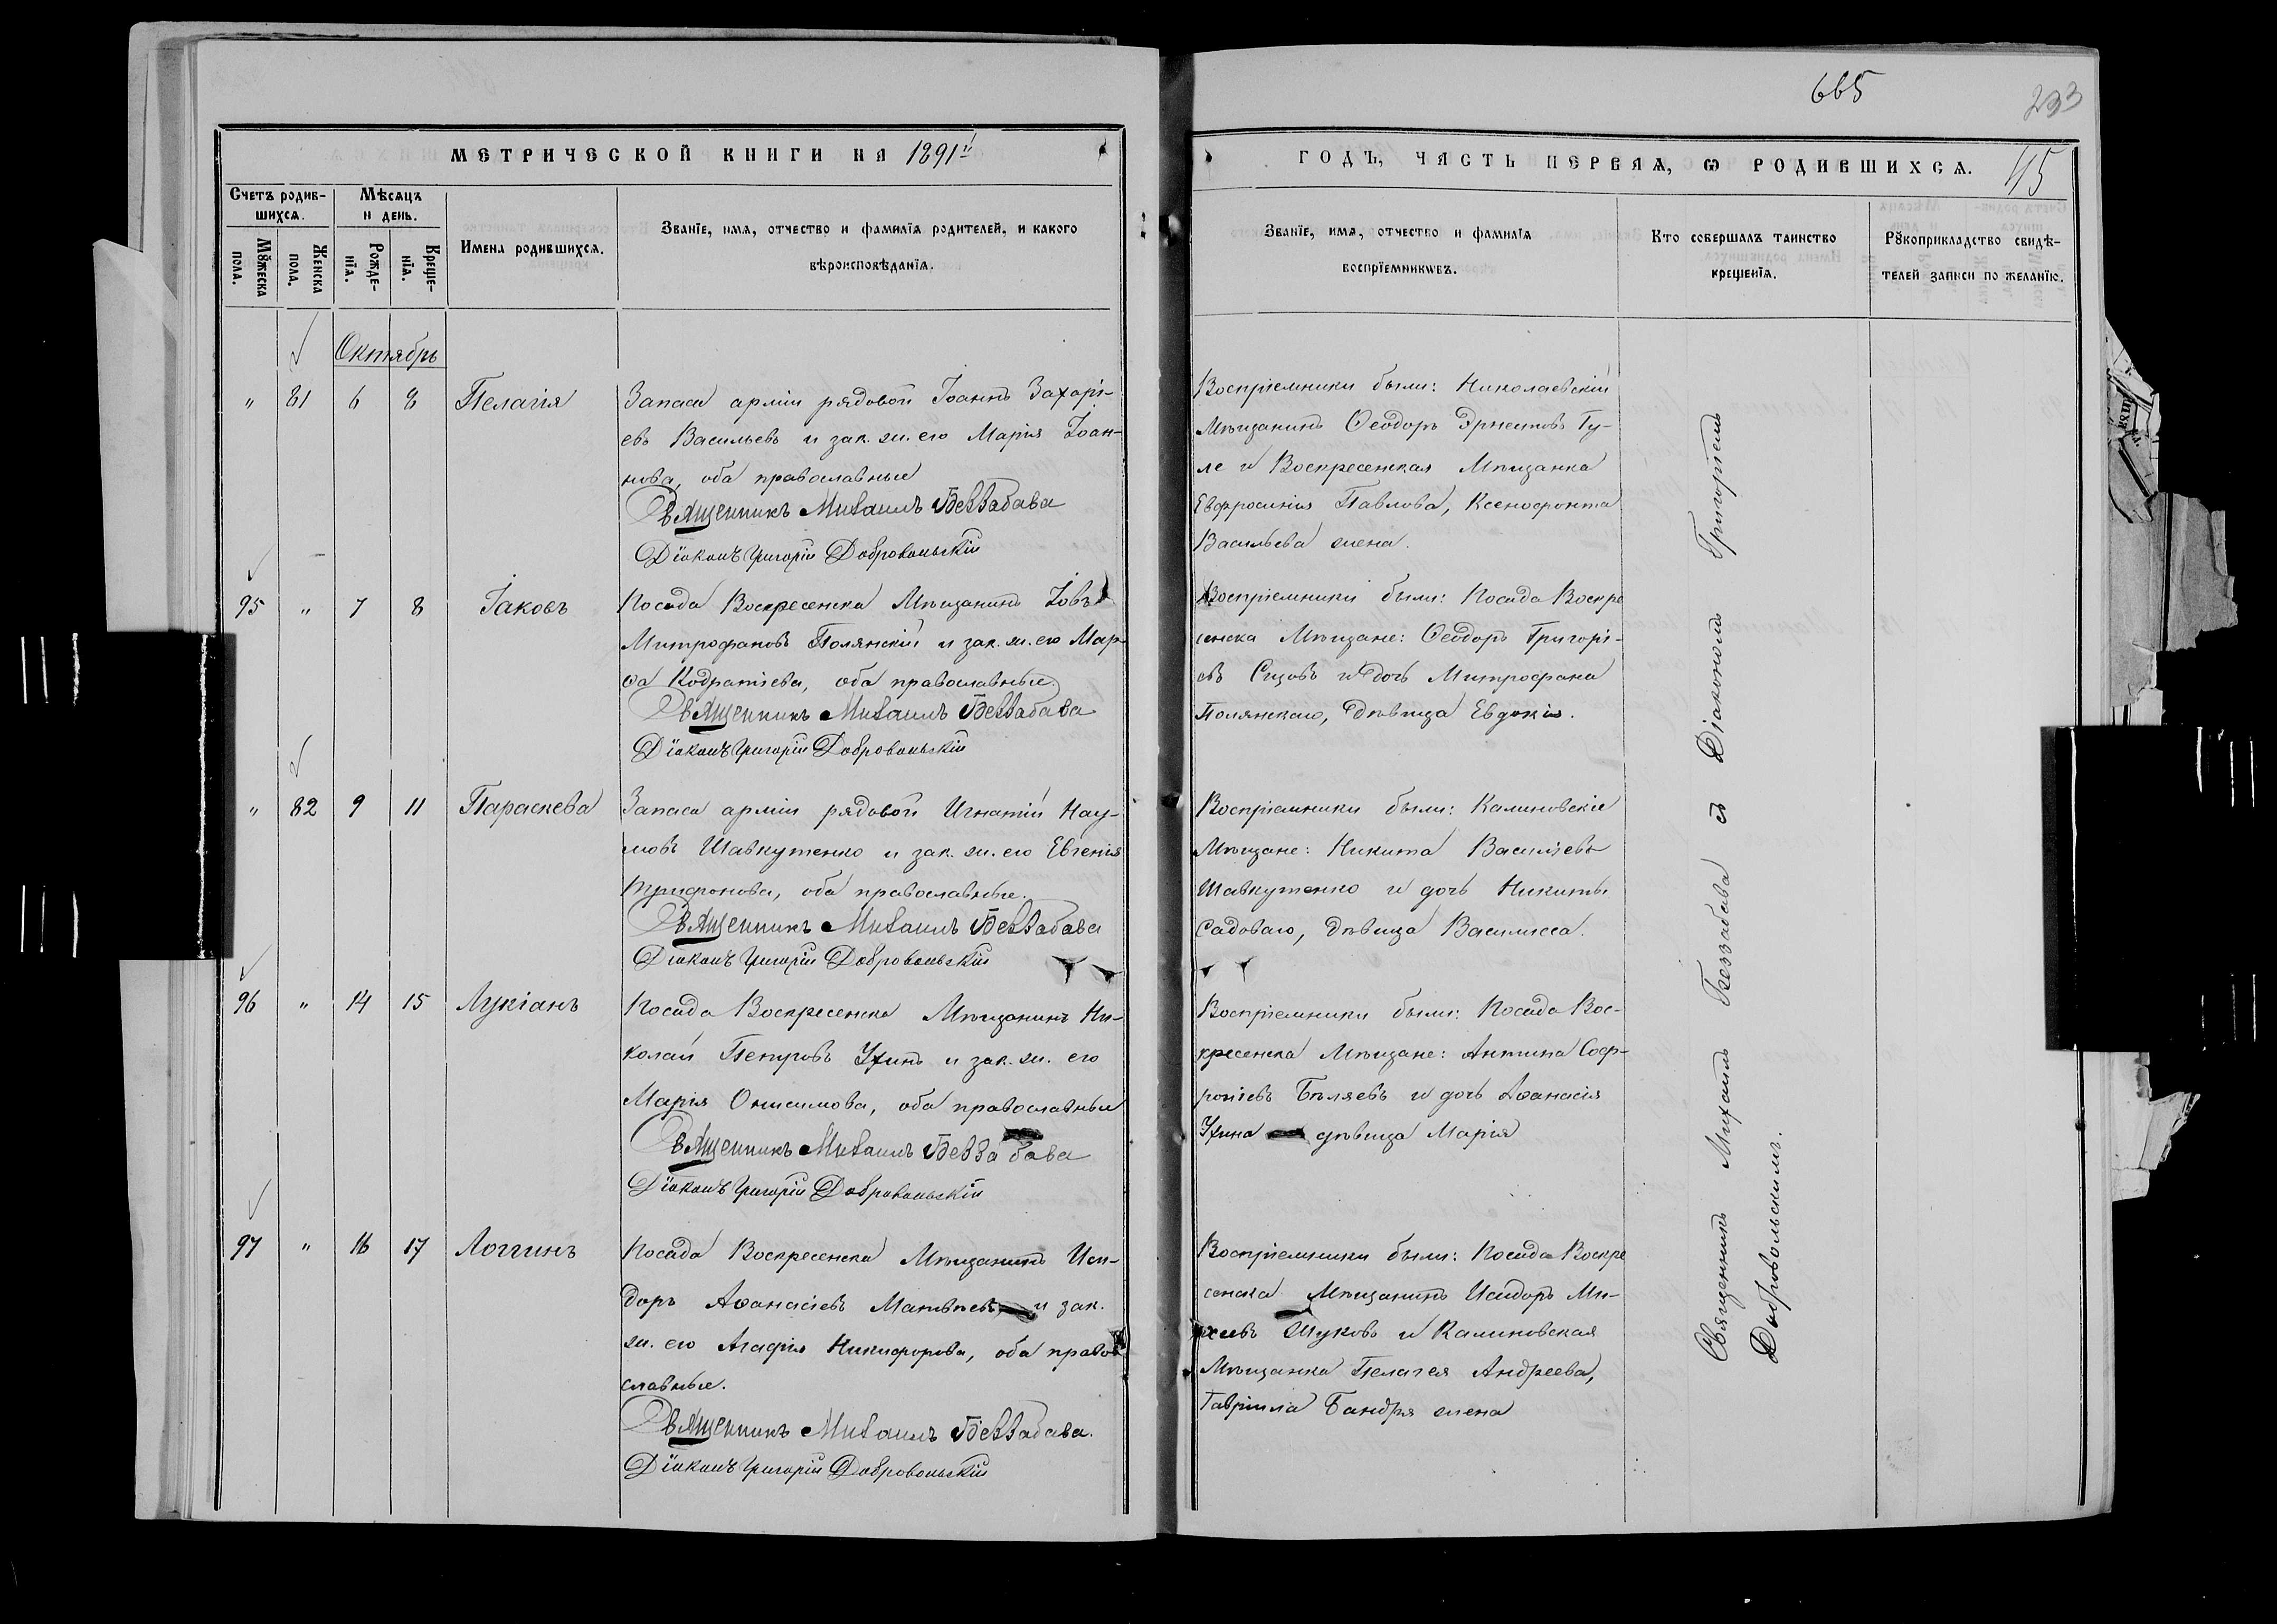 665
233
МЕТРИЧЕСКОЙ КНИГИ НА 1891й
ГОДЪ, ЧАСТЬ ПЕРВАЯ, Ѡ РОДИВШИХСѦ.
45
Счетъ родив-
шихсѧ.
Мѣсѧцъ
и день.
Имена родившихсѧ.
Званїе, имѧ, отчество и фамилїѧ родителей, и какого
вѣроисповѣданїѧ.
Мꙋжеска
пола.
Женска
пола.
Рожде-
нїѧ.
Креще-
нїѧ.
Званїе, имѧ, отчество и фамилїѧ
воспрїемниковъ.
Кто совершалъ таинство
крещенїѧ.
Рꙋкоприкладство свидѣ-
телей записи по желанїю.
Октябрь
" 81 6 8 Пелагія
Запаса арміи рядовой Іоаннъ Захарі-
евъ Васильевъ и зак. ж. его Марія Іоан-
нова, оба православные
Священникъ Михаилъ Беззабава
Діаконъ Григорій Добровольскій
Воспріемники были: Николаевскій
Мѣщанинъ Ѳеодоръ Эрнестовъ Гу-
ле и Воскресенская Мѣщанка
Евфросинія Павлова, Ксенофонта
Васильева жена.
95 " 7 8 Іаковъ
Посада Воскресенска Мѣщанинъ Іовъ
Митрофановъ Полянскій и зак. ж. его Мар-
ѳа Кодратіева, оба православные.
Священникъ Михаилъ Беззабава
Діаконъ Григорій Добровольскій
Воспріемники были: Посада Воскре
сенска Мѣщане: Ѳеодоръ Григорі-
евъ Сизовъ и дочь Митрофана
Полянскаго, дѣвица Евдокія.
" 82 9 11 Параскева
Запаса арміи рядовой Игнатій Нау-
мовъ Шавкутенко и зак. ж. его Евгенія
Трифонова, оба православные.
Священникъ Михаилъ Беззабава
Діаконъ Григорій Добровольскій
Воспріемники были: Калиновскіе
Мѣщане: Никита Василіевъ
Шавкутенко и дочь Никиты
Садоваго, дѣвица Василисса.
96 " 14 15 Лукіанъ
Посада Воскресенска Мѣщанинъ Ни-
колай Петровъ Ухинъ и зак. ж. его
Марія Онисимова, оба православные
Священникъ Михаилъ Беззабава
Діаконъ Григорій Добровольскій
Воспріемники были: Посада Вос-
кресенска Мѣщане: Антипа Соф-
роніевъ Бѣляевъ и дочь Аѳанасія
Ухина дѣвица Марія
97 " 16 17 Логгинъ
Посада Воскресенска Мѣщанинъ Иси-
доръ Аѳанасіевъ Матвѣевъ и зак.
ж. его Агафія Никифорова, оба право
славные.
Священникъ Михаилъ Беззабава.
Діаконъ Григорій Добровольскій
Воспріемники были: Посада Воскре
сенска Мѣщанинъ Исидоръ Ми-
хеевъ Жуковъ и Калиновская
Мѣщанка Пелагея Андреева,
Гавріила Бандря жена
Священникъ Михаилъ Беззабава съ Діакономъ Григоріемъ
Добровольскимъ.